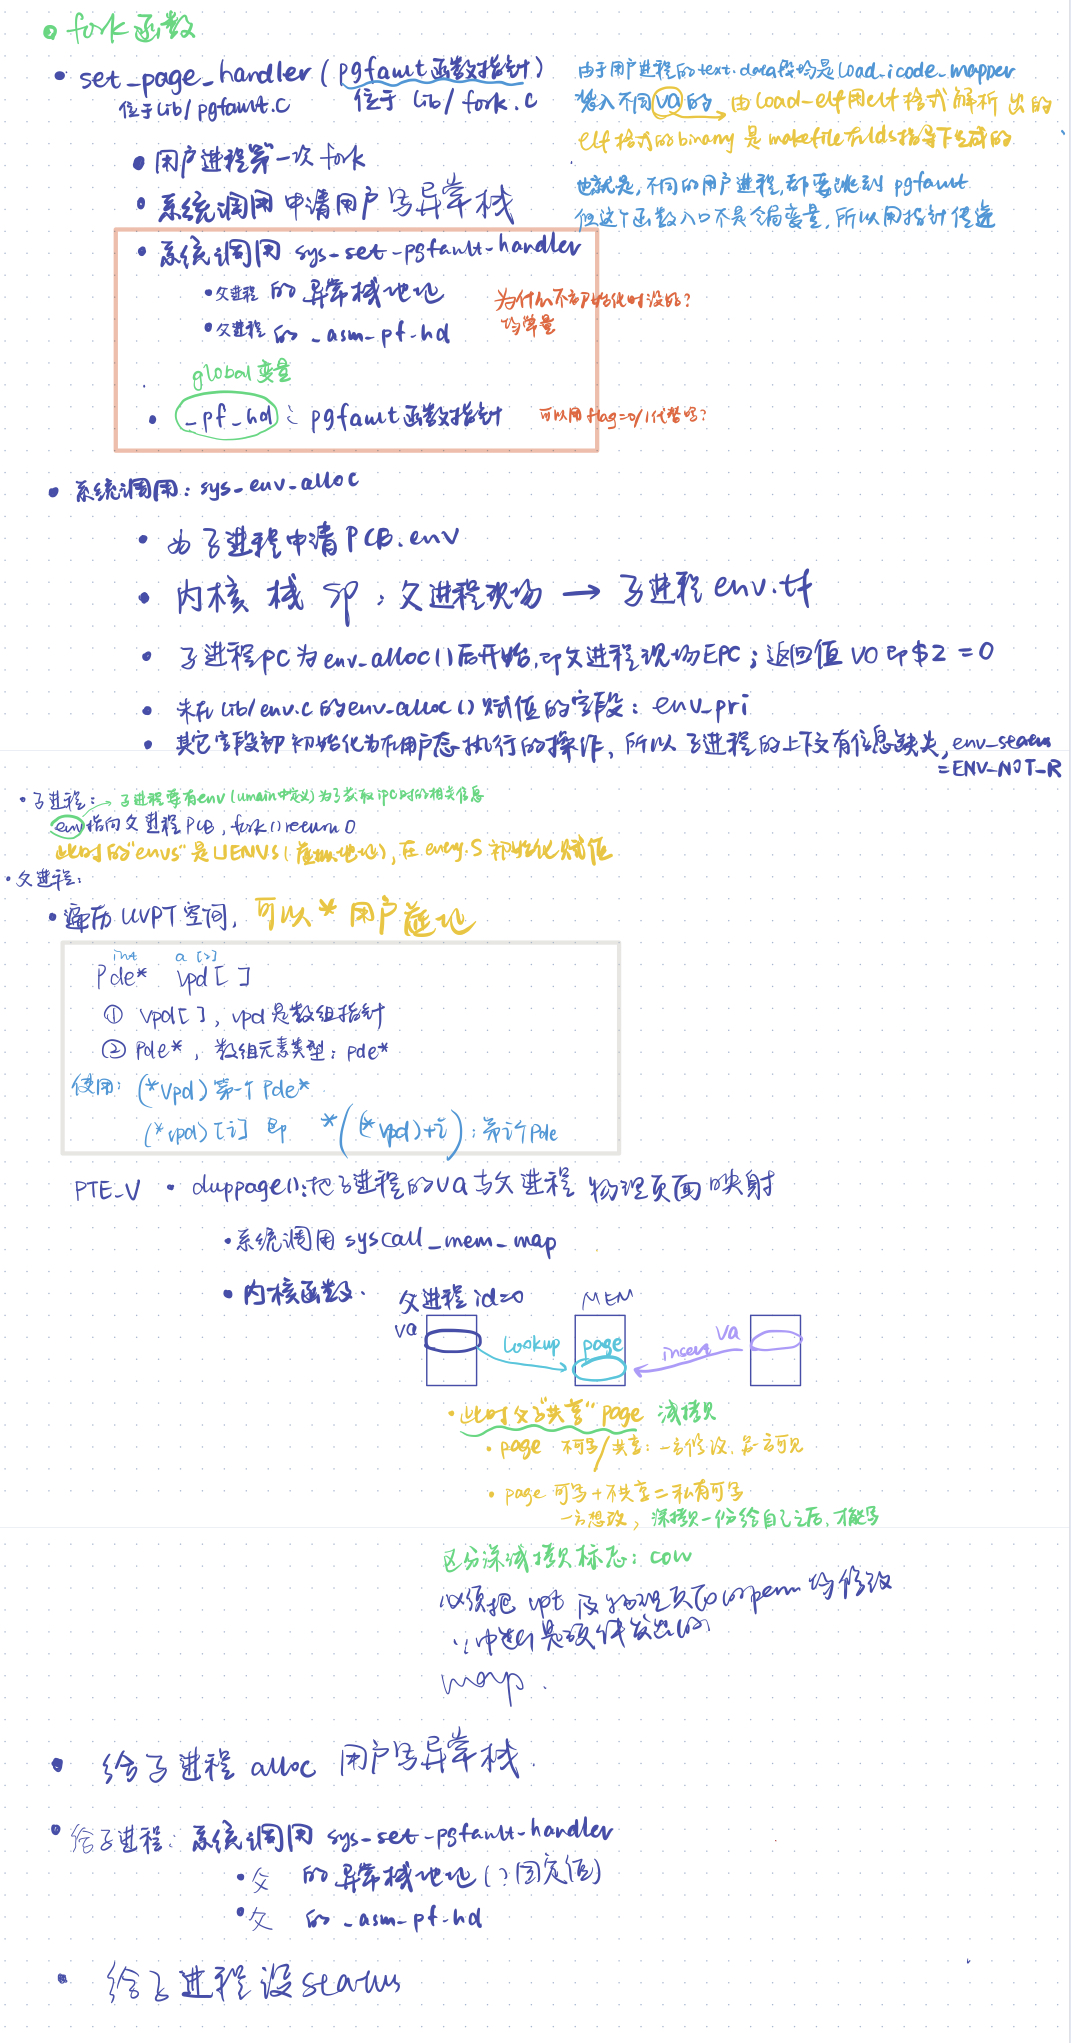 fork 函数
set_page_handler (pgfault函数指针)
位于lib/pgfault.c 位于 lib/fork.c
由于用户进程的text.data段均是load_icode_mapper
装入不同va的, 由load_elf用elf格式解析出的
elf格式的binary是makefile在lds指导下生成的
也就是,不同的用户进程,都要跳到pgfault
但这个函数入口不是全局变量,所以用指针传递
用户进程第一次fork
系统调用申请用户写异常栈
系统调用 sys_set_pgfault_handler
父进程 的 异常栈地址
父进程 的 _asm_pf_hd
为什么不在初始化时设的?
均常量
global变量
_pf_hd : pgfault函数指针
可以用flag=0/1代替吗?
系统调用: sys_env_alloc
为子进程申请PCB.env
内核栈 sp : 父进程现场 → 子进程env.tf
子进程pc为env_alloc()后开始,即父进程现场EPC; 返回值V0即$2=0
未在lib/env.c的env_alloc()赋值的字段: env_pri
其它字段都初始化为在用户态执行的操作, 所以子进程的上下文有信息缺失, env_status
=ENV_NOT_R
子进程: 子进程要有env(umain中定义)为了获取ipc时的相关信息
env指向父进程PCB, fork()return 0
此时的"envs"是UENVS(虚拟地址), 在entry.S初始化赋值
父进程:
遍历UVPT空间, 可以*用户虚地
int a[3]
Pde* vpd[]
① vpd[], vpd是数组指针
② Pde*, 数组元素类型: pde*
使用: (*vpd) 第一个Pde*
(*vpd)[i] 即 *((*vpd)+i): 第i个Pde
PTE_V duppage(): 把子进程的va与父进程 物理页面映射
系统调用 syscall_mem_map
内核函数. 父进程id=0 MEM
va lookup page insert va
此时父子"共享"page 浅拷贝
page 不可写/共享: 一方修改,另一方可见
page 可写+不共享=私有可写
一方想改, 深拷贝一份给自己之后,才能写
区分深浅拷贝标志: cow
必须把vpt及物理页面的perm均修改
∵中断是硬件发出的
map.
给子进程alloc 用户写异常栈.
给子进程: 系统调用 sys_set_pgfault_handler
父 的异常栈地址(?固定值)
父 的 _asm_pf_hd
给子进程设status